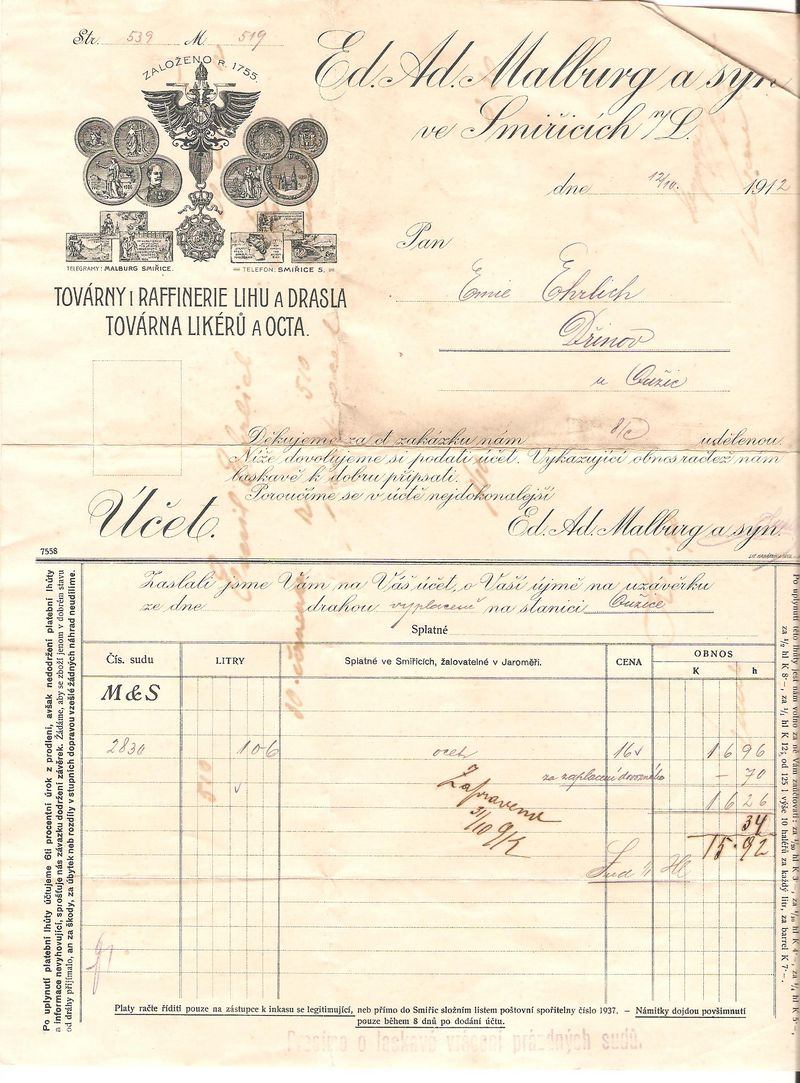 Str. 539 M. 519
ZALOŽENO R. 1755.
Ed. Ad. Malburg a syn
ve Smiřicích n/L.
dne 12/10. 1912
Pan
TELEGRAMY: MALBURG SMIŘICE. TELEFON: SMIŘICE 5.
Emil Ehrlich
TOVÁRNY i RAFFINERIE LIHU A DRASLA
Dřínov
TOVÁRNA LIKÉRŮ A OCTA.
u Oužic
Děkujeme za ct zakázku nám 8/ udělenou.
Níže dovolujeme si podati účet. Vykazující obnos račtež nám
laskavě k dobru připsati.
Poroučíme se v úctě nejdokonalejší
Účet.
Ed. Ad. Malburg a syn.
7558
Zaslali jsme Vám na Váš účet, o Vaší újmě na uzávěrku
ze dne drahou vyplaceně na stanici Oužice
Splatné
Čís. sudu LITRY Splatné ve Smiřicích, žalovatelné v Jaroměři. CENA OBNOS
K h
M & S
2830 106 ocet 16 16 96
za zaplacení dovozného – 70
16 26
Zapraveno 34
31/10 15·92
Sud
Platy račte říditi pouze na zástupce k inkasu se legitimující, neb přímo do Smiřic složním listem poštovní spořitelny číslo 1937. – Námitky dojdou povšimnutí
pouze během 8 dnů po dodání účtu.
Prosíme o laskavé vrácení prázdných sudů.
Po uplynutí platební lhůty účtujeme 6ti procentní úrok z prodlení, avšak nedodržení platební lhůty
a informace nevyhovující, sprošťuje nás závazku dodržení závěrek. Žádáme, aby se zboží jenom v dobrém stavu
od dráhy přijímalo, an za škody, za úbytek neb rozdíly v stupních dopravou vzešlé žádných náhrad neudílíme.
Po uplynutí této lhůty jest nám volno za ně Vám zaúčtovati: za
za 1/2 hl K 8·–, za 1/1 hl K 12; od 125 l výše 10 haléřů za každý litr, za barrel K 7·–.